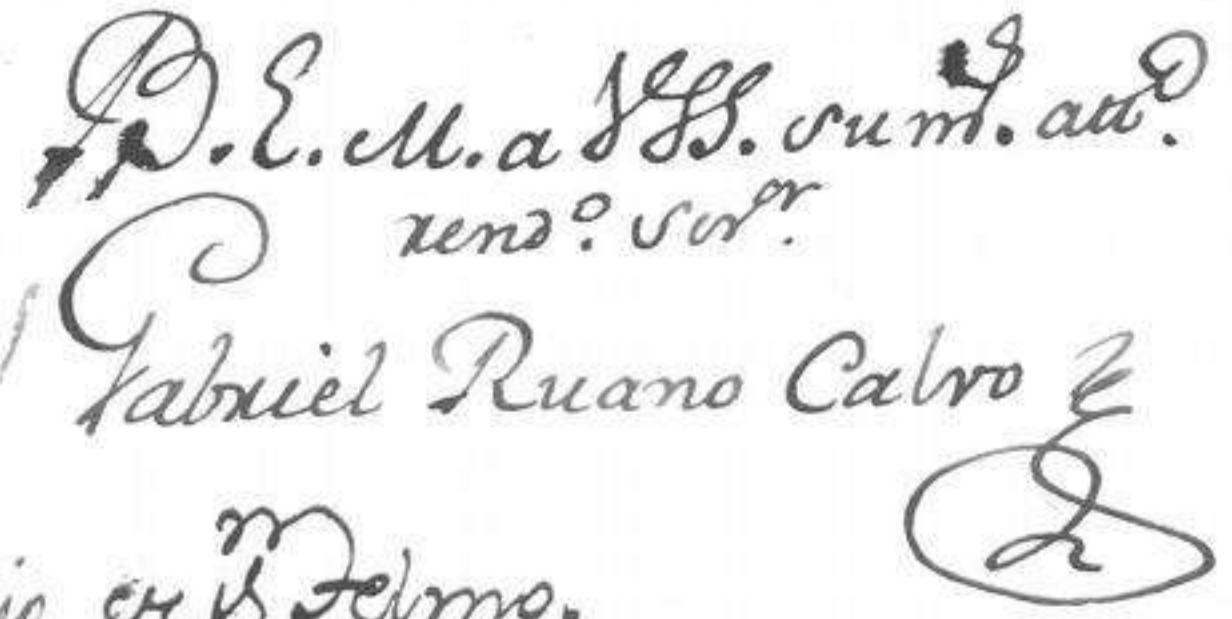 B. L. M. a VSS. su m.^s att^o.
rend^o. ser^or.
Gabriel Ruano Calvo
Sn Telmo.